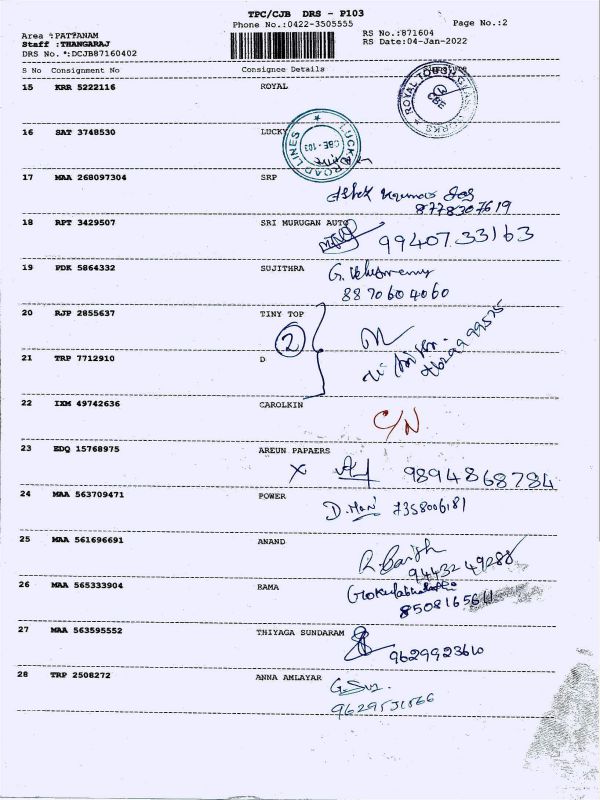 TPC/CJB DRS - P103
Phone No.:0422-3505555
Page No.:2
Area :PATTANAM
RS No.:871604
Staff :THANGARAJ
RS Date:04-Jan-2022
DRS No. *:DCJB87160402
S No Consignment No Consignee Details Signature
15 KRR 5222116 ROYAL
16 SAT 3748530 LUCKY
LUCKY ROAD LINES
CBE - 103
17 MAA 268097304 SRP
8778307619
18 RPT 3429507 SRI MURUGAN AUTO
99407 33163
19 PDK 5864332 SUJITHRA
8870604060
20 RJP 2855637 TINY TOP
2
21 TRP 7712910 D
22 IXM 49742636 CAROLKIN
C/N
23 EDQ 15768975 AREUN PAPAERS
X 9894868784
24 MAA 563709471 POWER
D. Mani 7358006181
25 MAA 561696691 ANAND
94432 49288
26 MAA 565333904 RAMA
8508165611
27 MAA 563595552 THIYAGA SUNDARAM
9629923610
28 TRP 2508272 ANNA AMLAYAR
9629531866